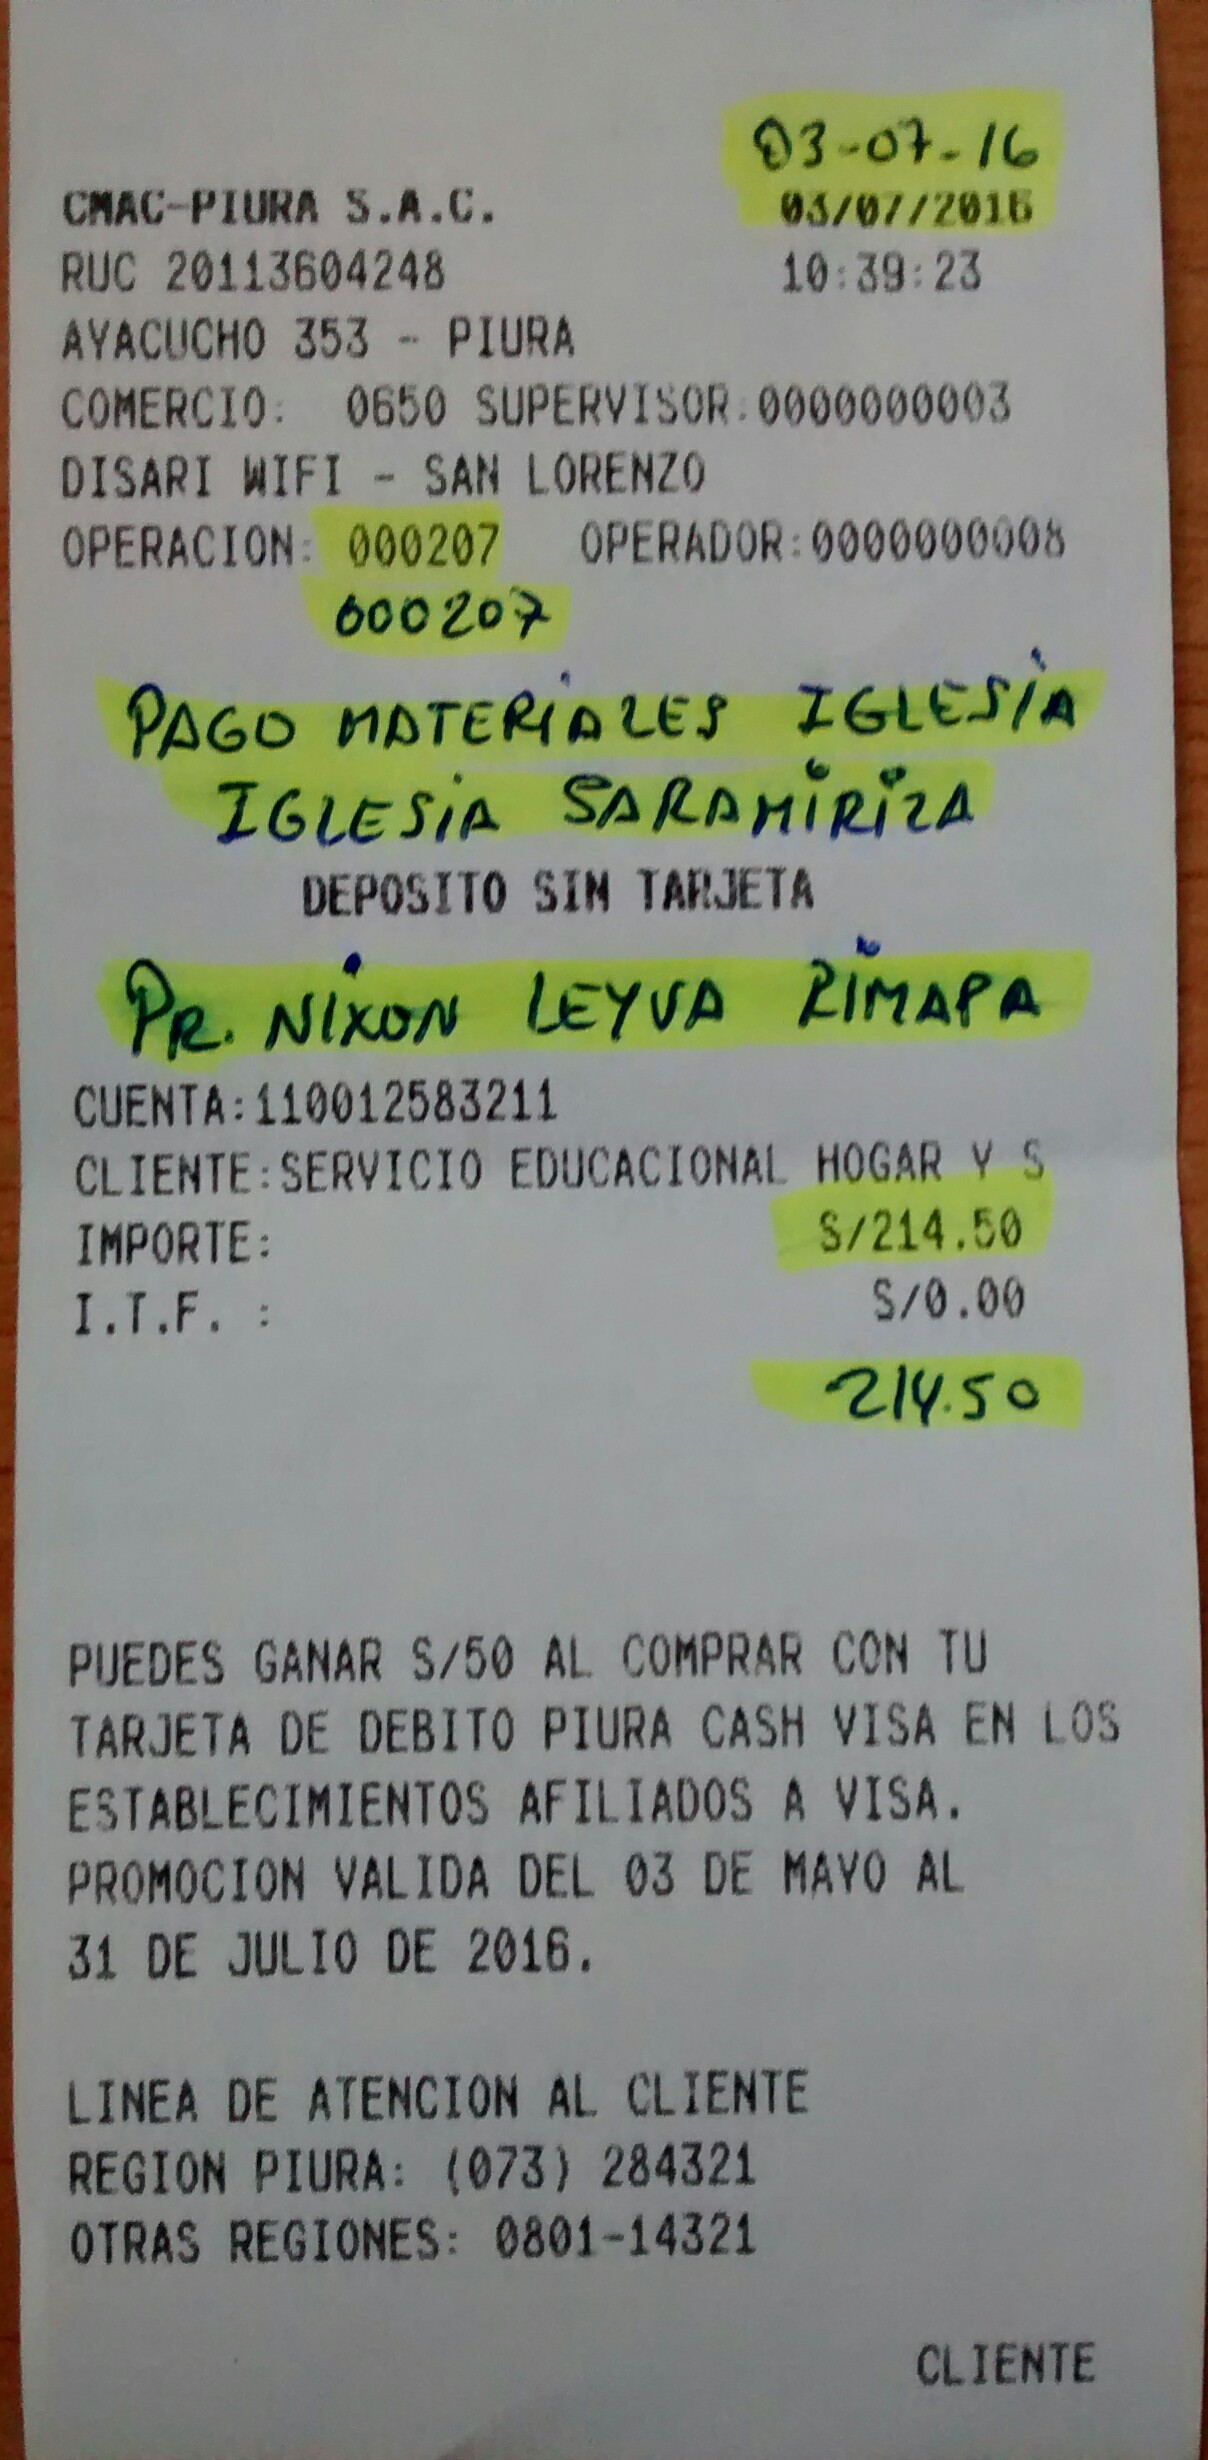 03-07-16
CMAC-PIURA S.A.C. 03/07/2016
RUC 20113604248 10:39:23
AYACUCHO 353 - PIURA
COMERCIO: 0650 SUPERVISOR:0000000003
DISARI WIFI - SAN LORENZO
OPERACION: 000207 OPERADOR:0000000008
000207
PAGO MATERIALES IGLESIA
IGLESIA SARAMIRIZA
DEPOSITO SIN TARJETA
PR. NIXON LEYVA RIMAPA
CUENTA:110012583211
CLIENTE:SERVICIO EDUCACIONAL HOGAR Y S
IMPORTE: S/214.50
I.T.F. : S/0.00
214.50
PUEDES GANAR S/50 AL COMPRAR CON TU
TARJETA DE DEBITO PIURA CASH VISA EN LOS
ESTABLECIMIENTOS AFILIADOS A VISA.
PROMOCION VALIDA DEL 03 DE MAYO AL
31 DE JULIO DE 2016.
LINEA DE ATENCION AL CLIENTE
REGION PIURA: (073) 284321
OTRAS REGIONES: 0801-14321
CLIENTE